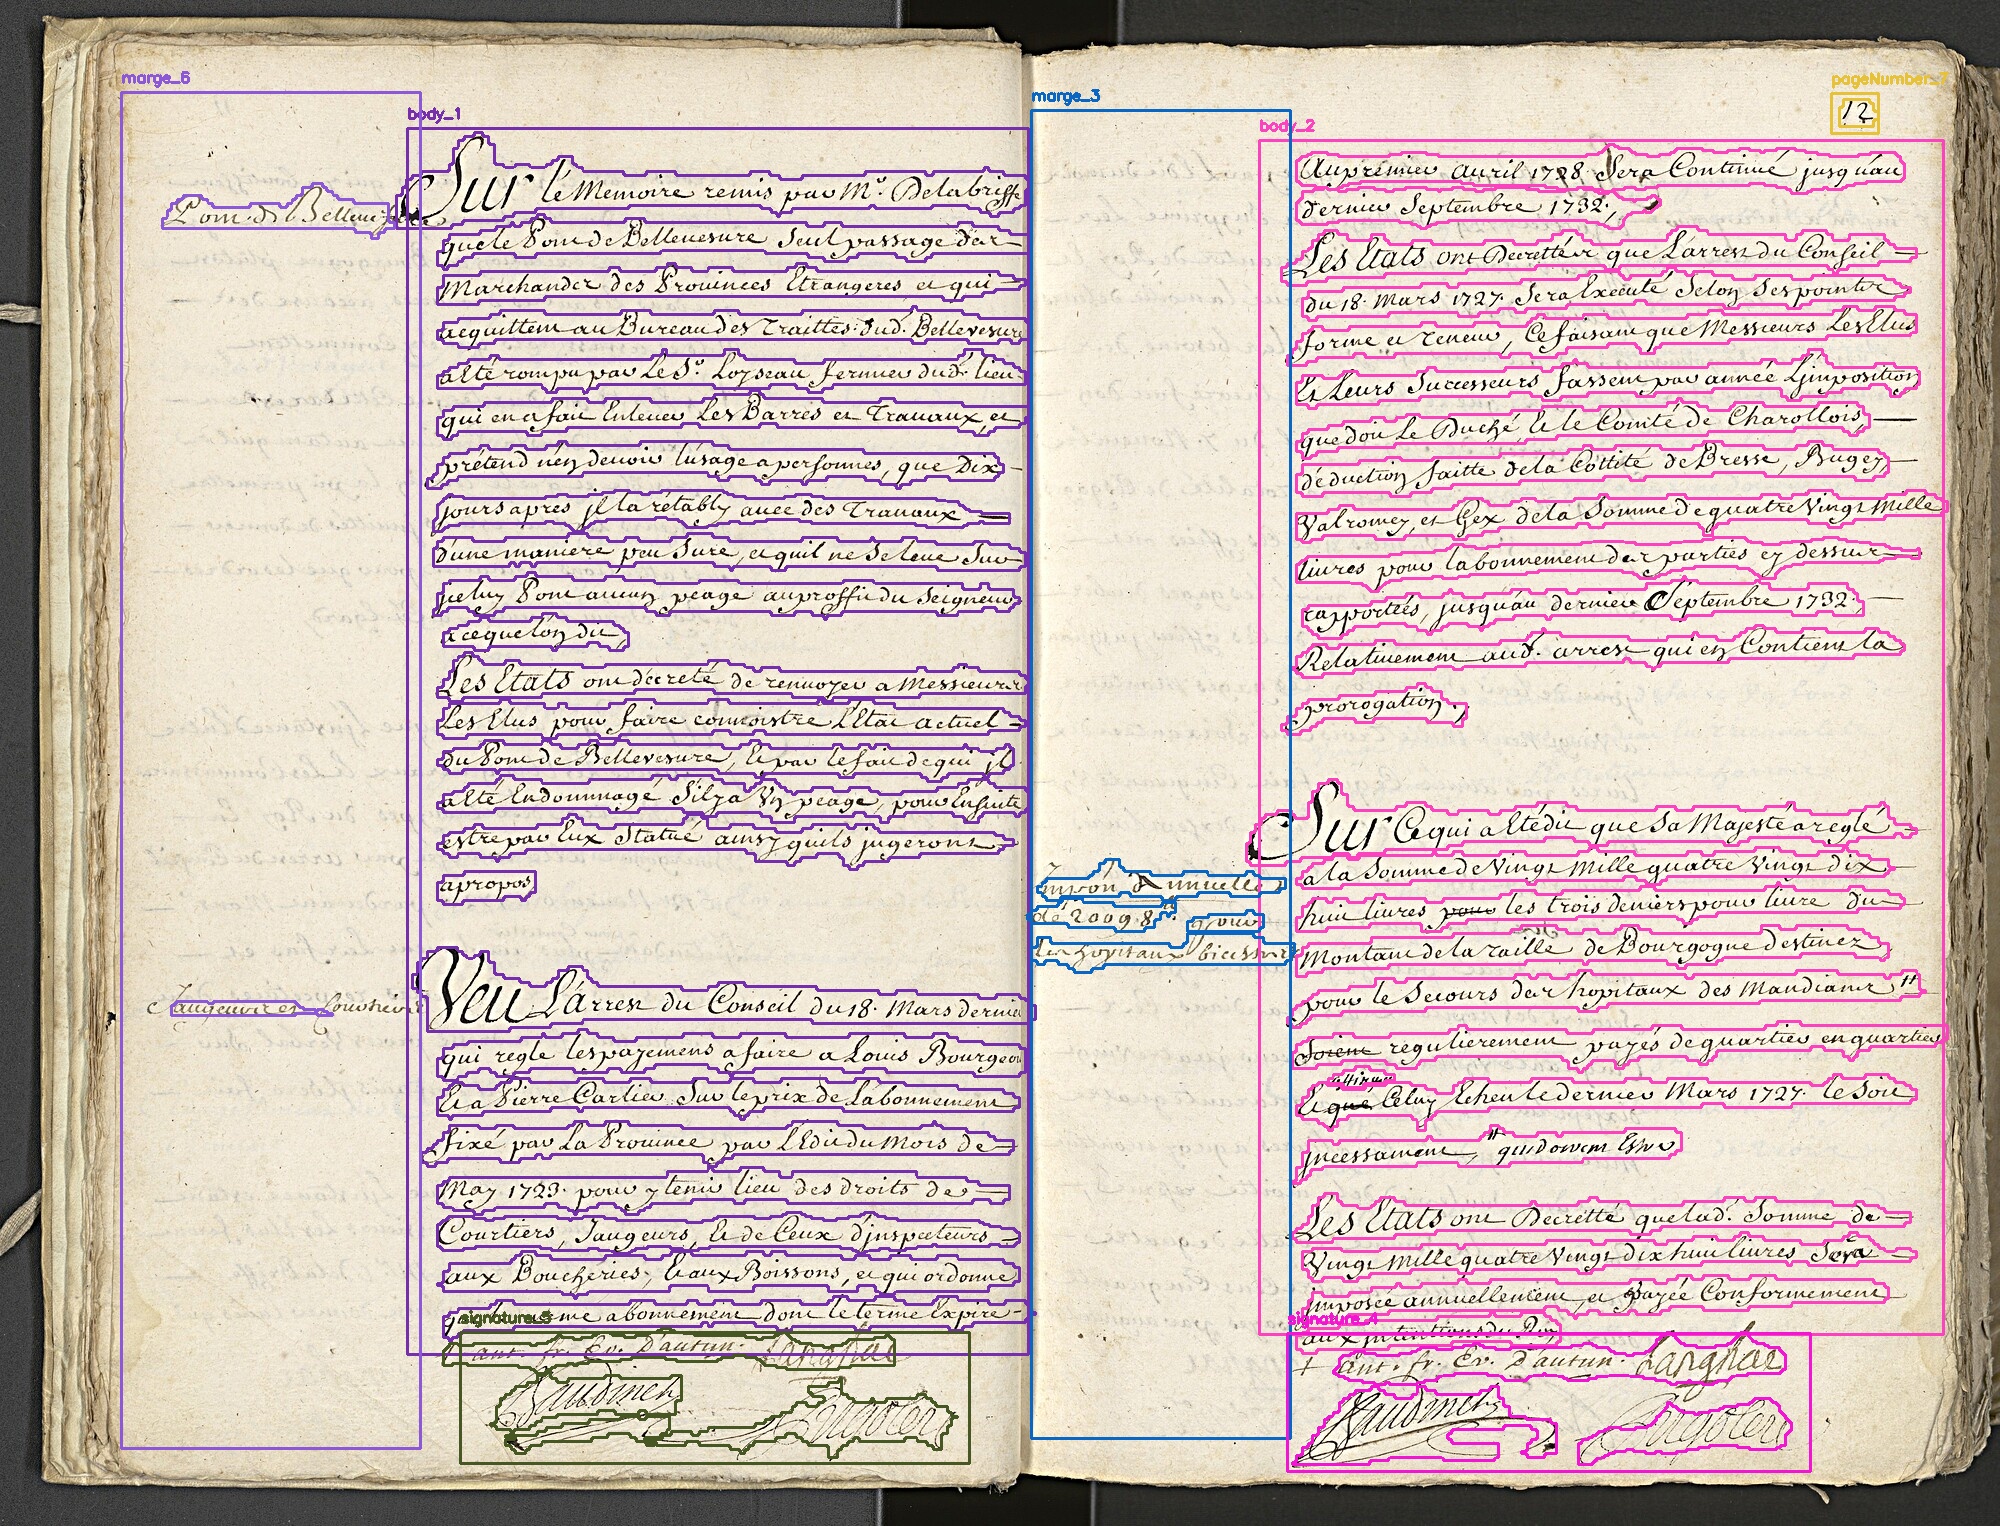 Pont de Bellevesure
Sur le Memoire remis par Mr. Delabriffe
que le Pont de Bellevesure Seul passage der
Marchander des Provinces Etrangeres et qui
acquittent au Bureau des Traittes dud. Bellevesure
a Eté rompu par Le Sr. Loyseau fermier dud. lieu
qui en a fait Enlever Les Barres et Travaux, et
prétend n'en devoir l'usage a personnes, que Dix
jours apres jl la rétably avec des Travaux
d'une maniere peu Sure, et quil ne Se leve Sur
jceluy Pont aucun peage au proffit du Seigneur
a ce que lon dit,
Les Etats ont décreté de renvoyer a Messieurs
Les Elus pour faire connoistre L'Etat actuel
du Pont de Bellevesure, Et par le fait de qui jl
a Eté Endommagé S'il y a Un peage, pour Ensuite
estre par Eux Statué ainsy quils jugeront
apropos
Jaugeurs et Courtiers
Veu L'arrest du Conseil du 18. Mars dernier
qui regle les payemens a faire a Louis Bourgeois
Et a Pierre Cartier Sur le prix de Labonnement
fixé par La Province par L'Edit du Mois de
May 1723. pour y tenir lieu des droits de
Courtiers, Jaugeurs, Et de Ceux d'jnspecteurs
aux Boucheries, Et aux Boissons, et qui ordonne
me abonnement dont le terme Expire
+ ant. fr. Ev. D'autun. Langhac
Baudinet
12
Au premier Avril 1728. Sera Continué jusqu'au
dernier Septembre 1732.,
Les Etats ont Decretté que L'arrest du Conseil
du 18. Mars 1727. Sera Executé Selon Ses pointer
forme et teneur, Ce faisant que Messieurs Les Elus
Et Leurs Successeurs fassent par année L'jmposition
que doit Le Duché, Et le Comté de Charollois,
déduction faitte de la Cottité de Bresse, Bugey,
Valromey, et Gex de la Somme de quatre Vingt Mille
livres pour labonnement der parties cy dessus
rapporteés, jusqu'au dernier Septembre 1732.
Relativement aud. arrest qui en Contient la
prorogation.,
Sur Ce qui a Eté dit que Sa Majesté a reglé
Impon. Annuelle
de 20098tt pour
les hopitaux
a la Somme de Vingt Mille quatre Vingt dix
huit livres pour les trois deniers pour livre du
Montant de la Taille de Bourgogne destinez
pour le Secours der hopitaux des Mandians #
Soient regulierement payés de quartier en quartier
Et que Celuy Echeu le dernier Mars 1727. le Soit
jncessament, # qui doivent Estre
Les Etats ont Decretté que lad. Somme de
Vingt Mille quatre Vingt dix huit livres Sera
jmposée annuellement, et payée Conformement
aux jntentions du Roy
+ ant. fr. Ev. D'autun. Langhac
Baudinet